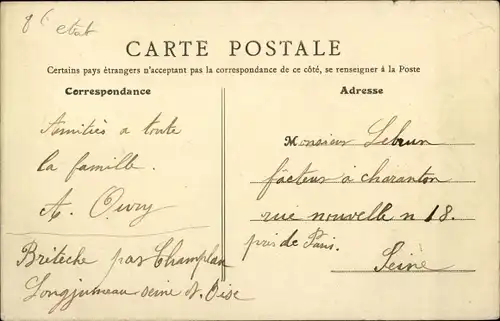 8 c
etat
CARTE POSTALE
Certains pays étrangers n'acceptant pas la correspondance de ce côté, se renseigner à la Poste
Correspondance
Amitiés a toute
la famille.
A. Oury
Briteche par Champlan
Longjumeau seine & Oise
Adresse
Monsieur Lebrun
facteur à charanton
rue nouvelle n 18.
près de Paris.
Seine